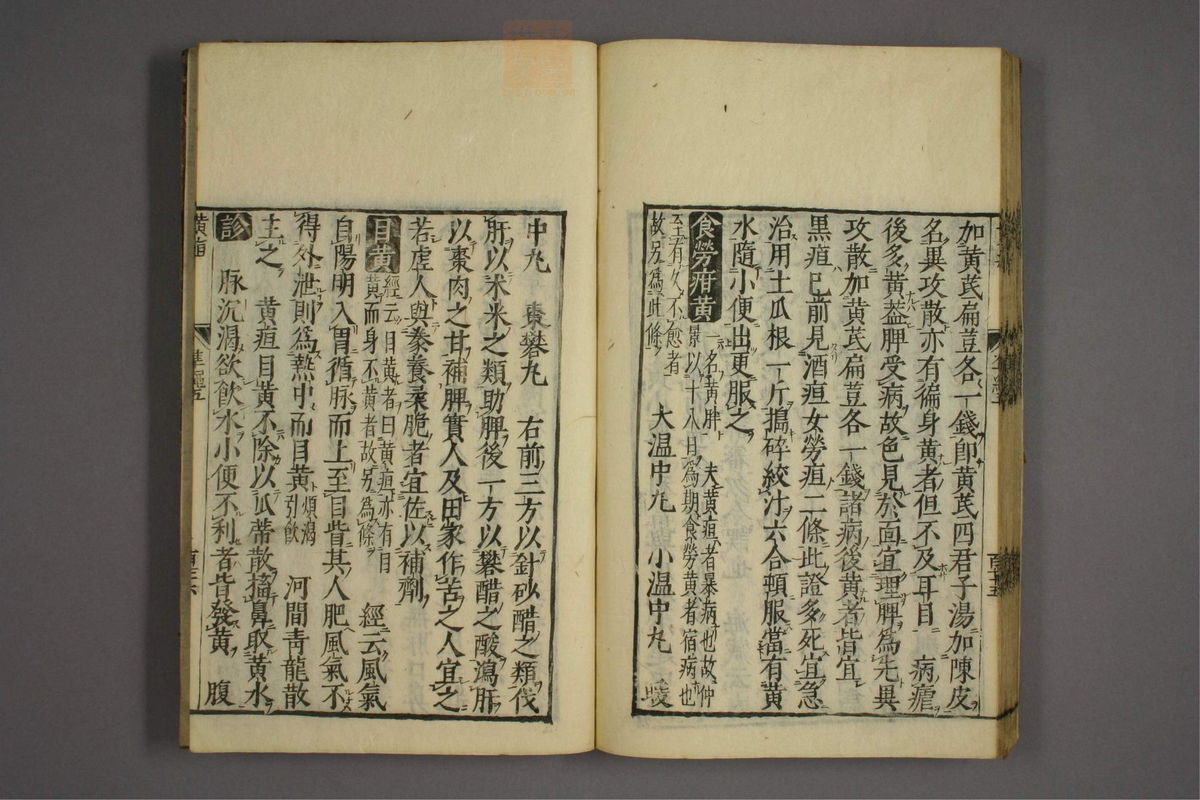 加黃芪扁荳各一錢卽黃芪四君子湯加陳皮
名異攻散亦有徧身黃者但不及耳目　病瘧
後多黃葢脾受病故色見於面宜理脾為先異
攻散加黃芪扁荳各一錢諸病後黃者皆宜
黑疸巳前見酒疸女勞疸二條此證多死宜急
治用土瓜根一斤搗碎絞汁六合頓服當有黃
水隨小便出更服之
食勞疳黃　一名黃胖　夫黃疸者暴病也故仲
景以十八日為期食勞黃者宿病也
至有久不愈者
故另為此條　大温中丸　小温中丸　㕮
中丸　棗礬丸　右前三方以針砂醋之類伐
肝以米米之類助脾後一方以礬醋之酸瀉肝
以棗肉之甘補脾實人及田家作苦之人宜之
若虛人與豢養柔脆者宜佐以補劑
目黃　經云目黃者曰黃疸亦有目
黃而身不黃者故另為條　經云風氣
自陽明入胃循脉而上至目眥其人肥風氣不
得外泄則為熱中而目黃　煩渴引飮　河間靑龍散
主之　黃疸目黃不除以瓜蔕散搐鼻取黃水
診　脉沉渴欲飮水小便不利者皆發黃　腹